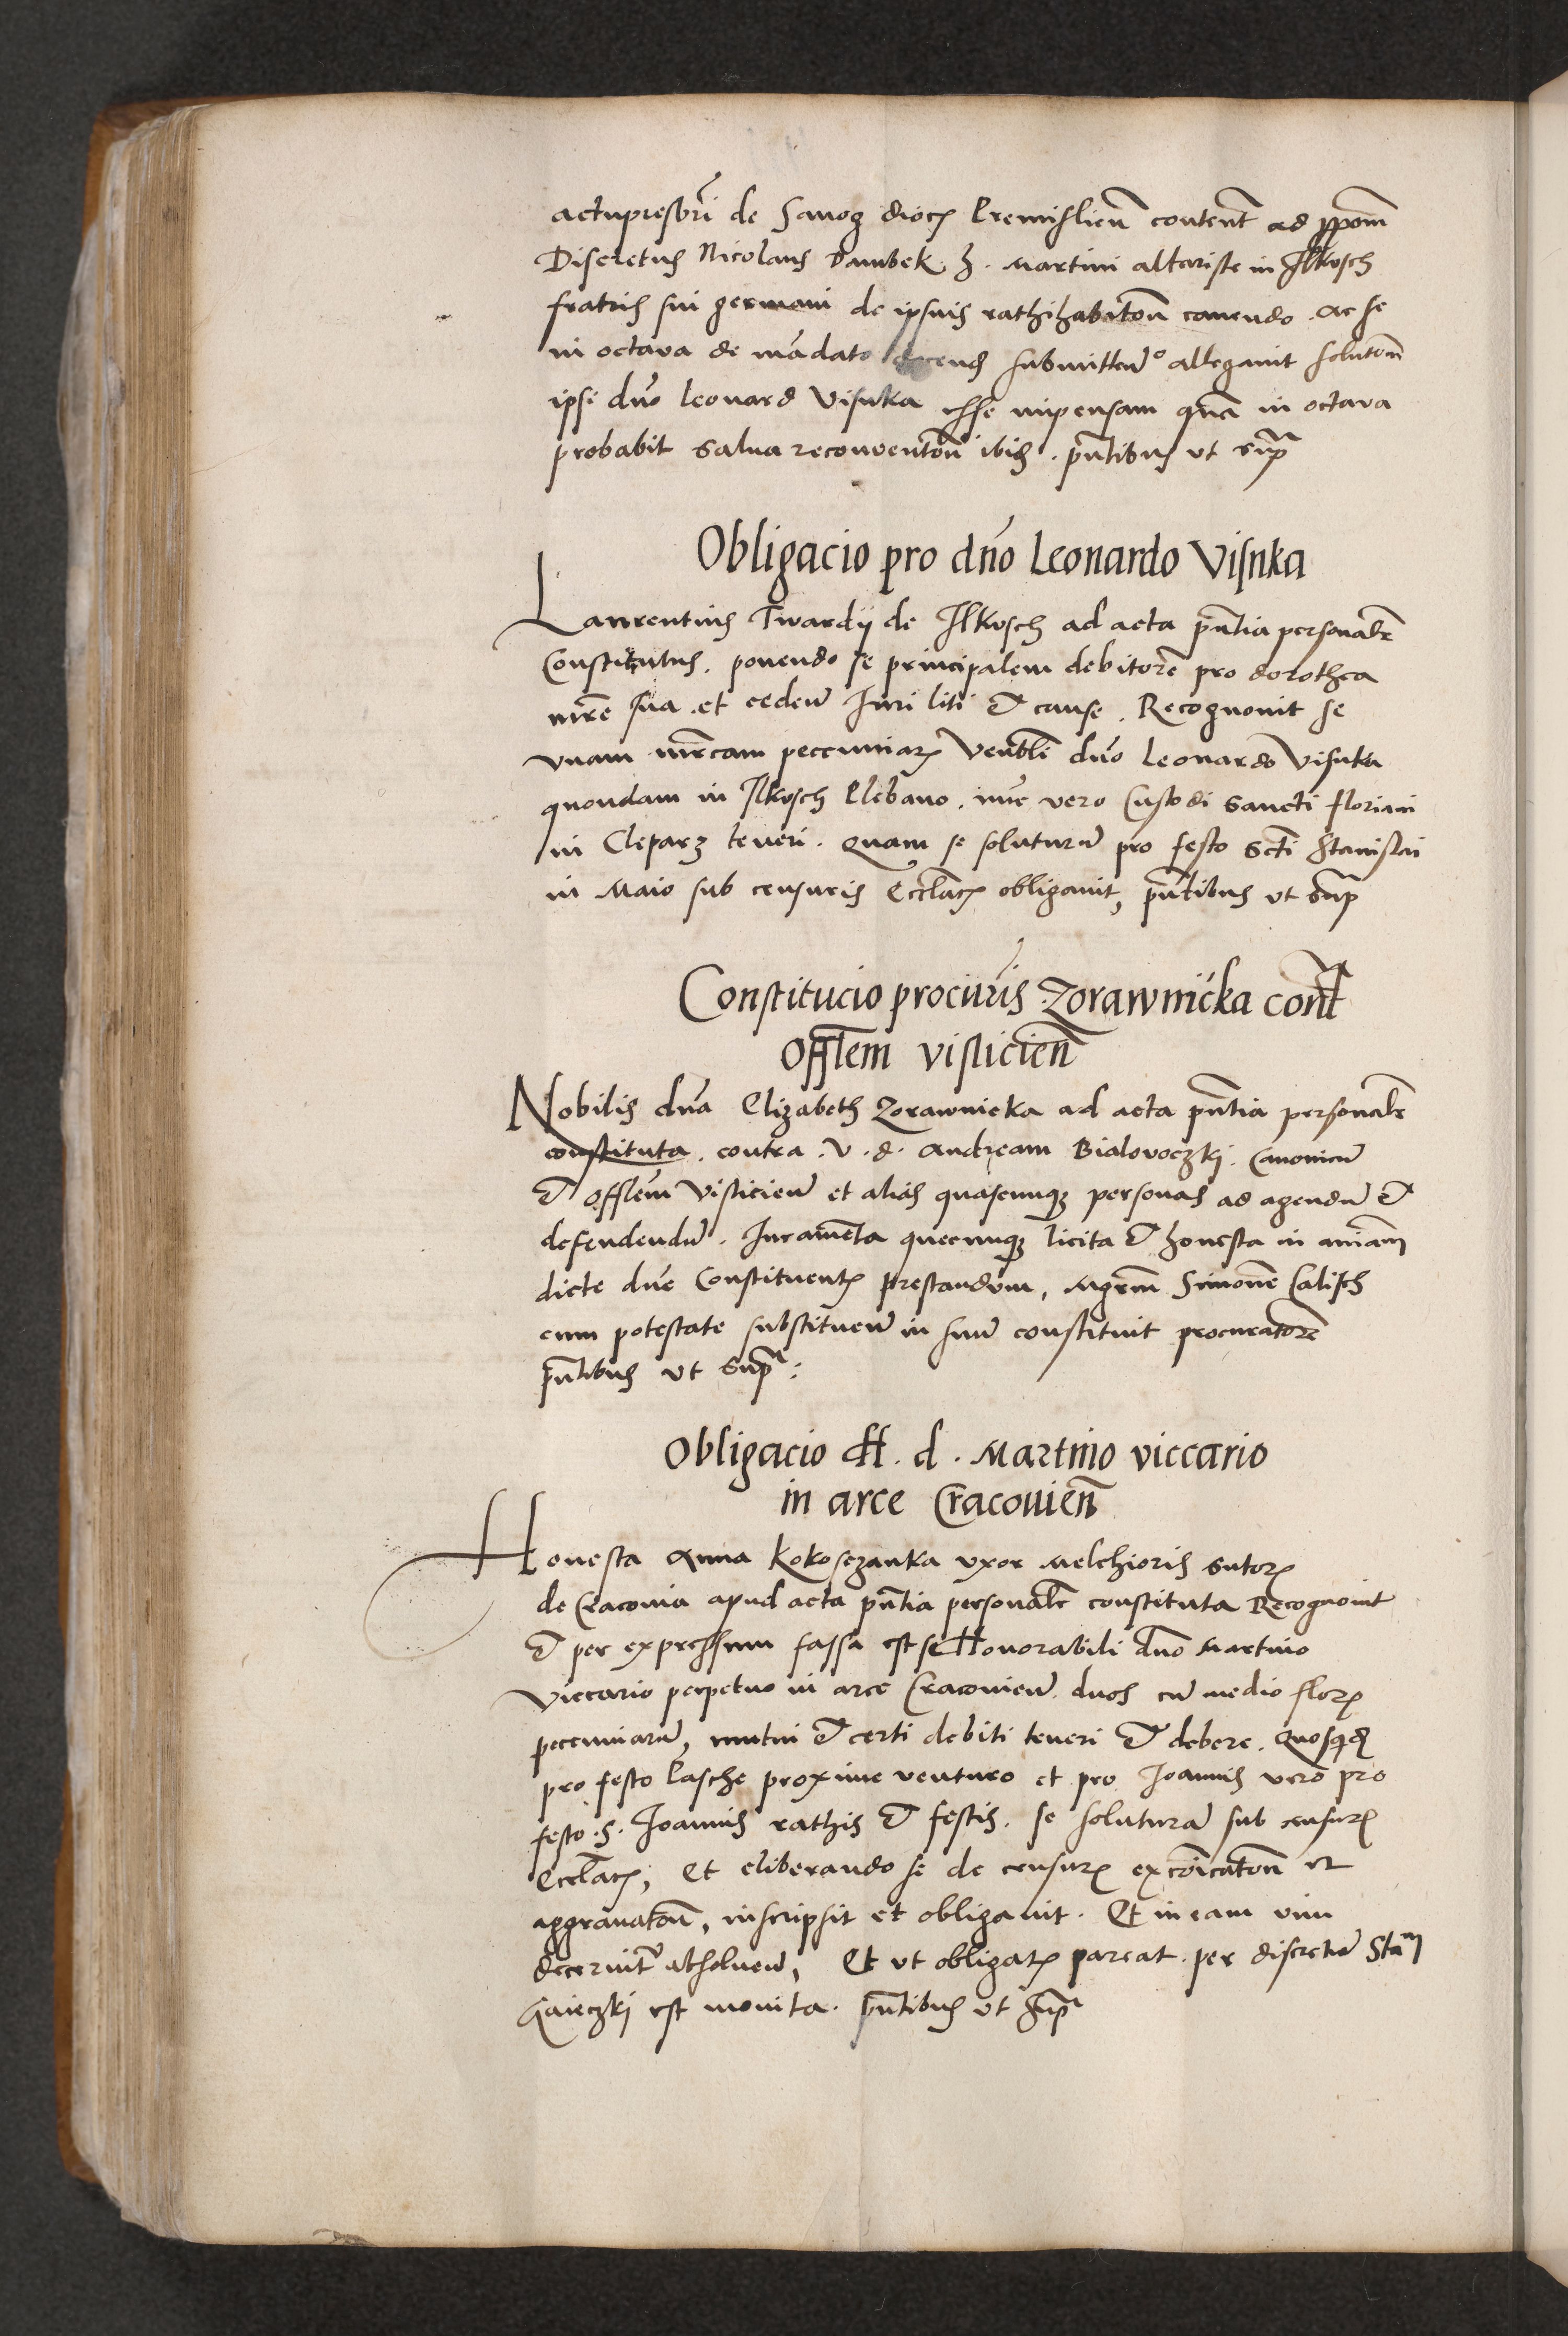 actupresbri de Sanog dioc Premislien content ad pponem
Discretus Nicolaus Dambek. h. Martini altariste in Ilkusch
fratris sui germani de ipsius rathihabitoni cavendo. ac se
in octava de mandato docend submitten° allegavit solutoem
ipsi dno Leonard Visnka esse impensam qua in octava
probabit Salva reconventoni ibid. pntibus ut supra
Obligacio pro dno Leonardo Visnka
Laurentius Twardij de Ilkusch ad acta pntia personalr
Constitutus. ponendo se principalem debitore pro dorothea
mre sua. et cedens Iuri liti et cause. Recognovit se
Unam mrcam pecuniar Venbli dno Leonardo Visnka
quondam in Ilkusch Plebano. nunc vero Custodi Sancti Floriani
in Cleparz teneri. Quam se soluturu pro festo Scti Stanislai
in Maio sub censuris Eccliac obligavit, pntibus ut supra
Constitucio procuris Zorawnicka contra
Offlem Visliciens
Nobilis dna Elizabeth Zorawnicka ad acta pntia personalr
constituta. contra. V. d. Andream Bialovoczkj. Canonicu
et offlem Visliciens et alias quascunque personas ad agendu et
defendendu. Iuramenta quecunque licita et honesta in aniam
dicte dne Constituent prestandum, Mgrm Simone Calisch
cum potestate substituen in suu constituit procuratore
pntibus ut Supra:
Obligacio H. d. Martino viccario
in arce Cracovien
Honesta Anna Kokosczanka uxor Melchioris Sutor
de Cracovia apud acta pntia personalr constituta Recognovit
et per expressum fassa est se Honorabili dno Martino
Viccario perpetuo in arce Cracovien. duos cu medio flor
pecuniaru, mutui et certi debiti teneri et debere. Quosquid
pro festo Pasche proxime venturo et pro Ioannis vero pro
festo. S. Ioannis rathis et festis. se soluturam sub censur
Eccliac, Et eliberando se de censur excoicatoni et
aggravatoni, inscripsit et obligavit. Et in eam vim
decernit absolven, Et ut obligat pareat. per discretu Stam
Gaieczkj est monita. pntibus ut supra